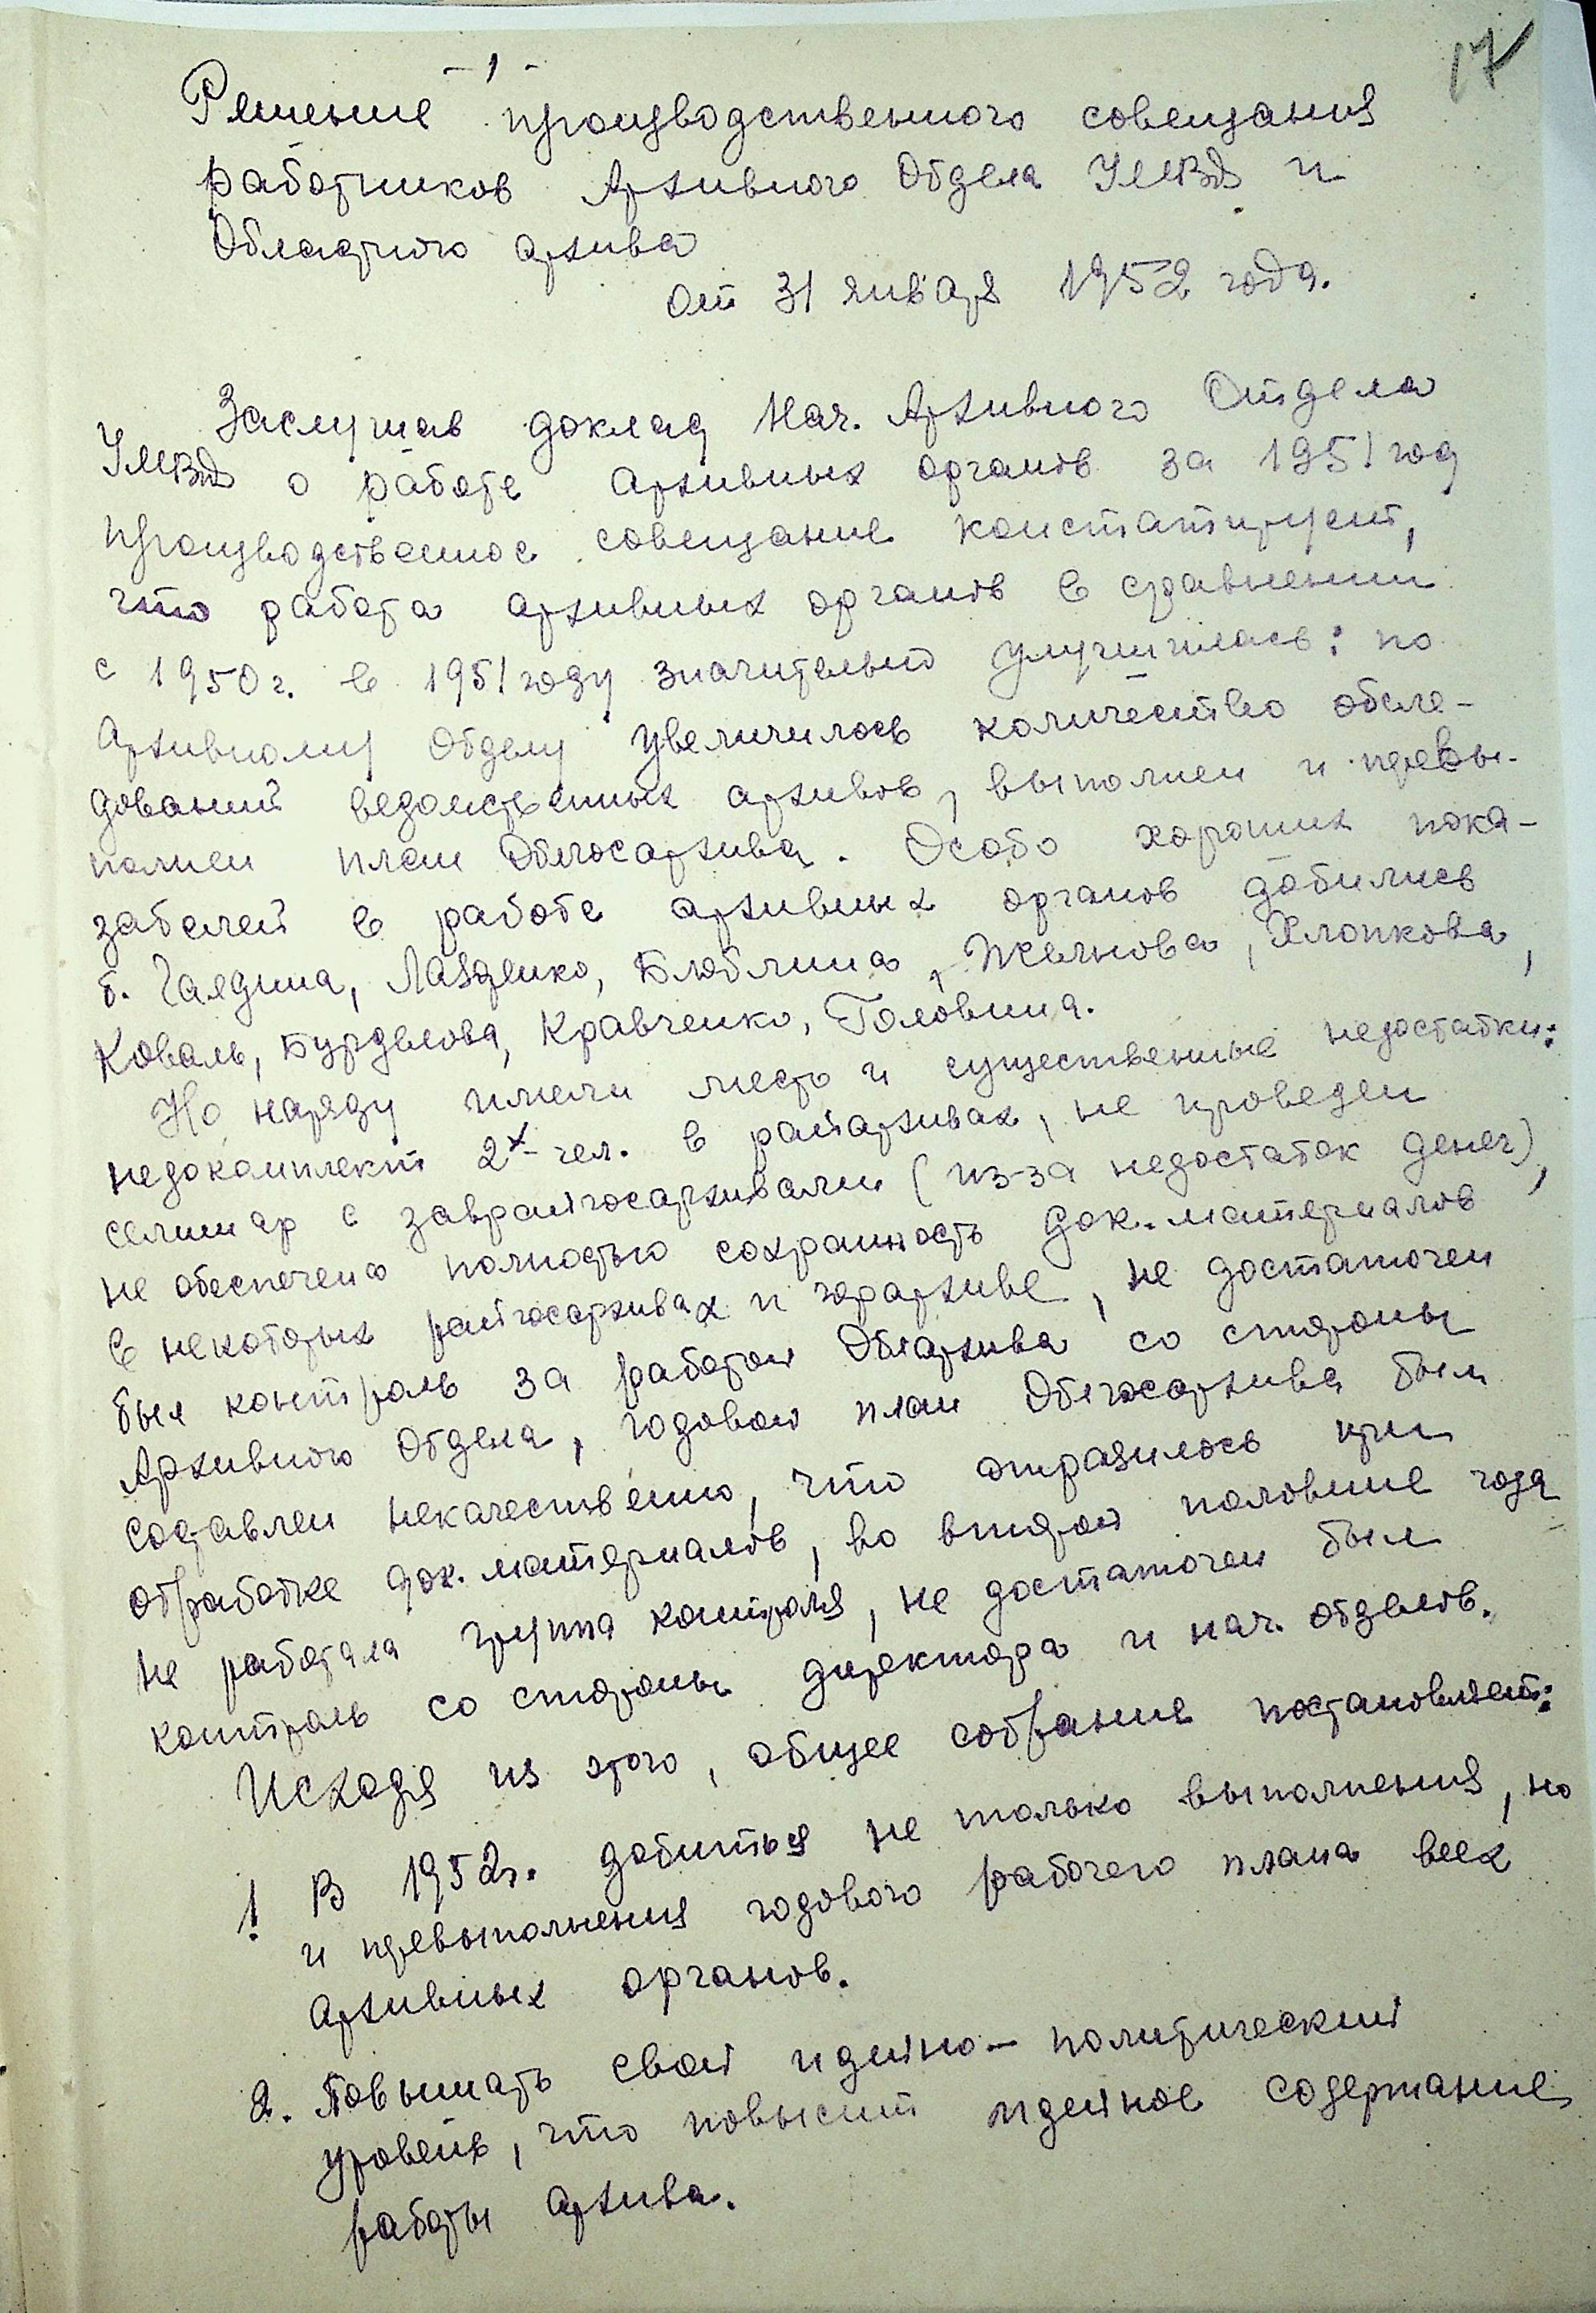 17
- 1 -
Решение производственного совещания
работников Архивного Отдела УМВД и
Областного архива
от 31 января 1952 года.
Заслушав доклад Нач. Архивного Отдела
УМВД о работе архивных органов за 1951 год
производственное совещание констатирует,
что работа архивных органов в сравнении
с 1950 г. в 1951 году значительно улучшилась: по
Архивному Отделу увеличилось количество обсле-
дований ведомственных архивов, выполнен и перевы-
полнен план Облгосархива. Особо хороших пока-
зателей в работе архивных органов добились
т. Лазценко, Блюблина, Жельнова, Хлопкова,
Коваль, Бурделова, Кравченко, Головина.
Но наряду имели место и существенные недостатки:
недокомплект 2х чел. в райархивах, не проведен
семинар с заврайгосархивами (из-за недостаток денег),
не обеспечена полностью сохранность док. материалов
в некоторых райгосархивах и горархиве, не достаточен
был контроль за работой Облархива со стороны
Архивного Отдела, годовой план Облгосархива был
составлен некачественно, что отразилось при
обработке док. материалов, во второй половине года
не работала группа контроля, не достаточен был
контроль со стороны директора и нач. отделов.
Исходя из этого, общее собрание постановляет:
1. В 1952г. добиться не только выполнения, но
и перевыполнения годового рабочего плана всех
архивных органов.
2. Повышать свой идейно-политический
уровень, что повысит идейное содержание
работы архива.